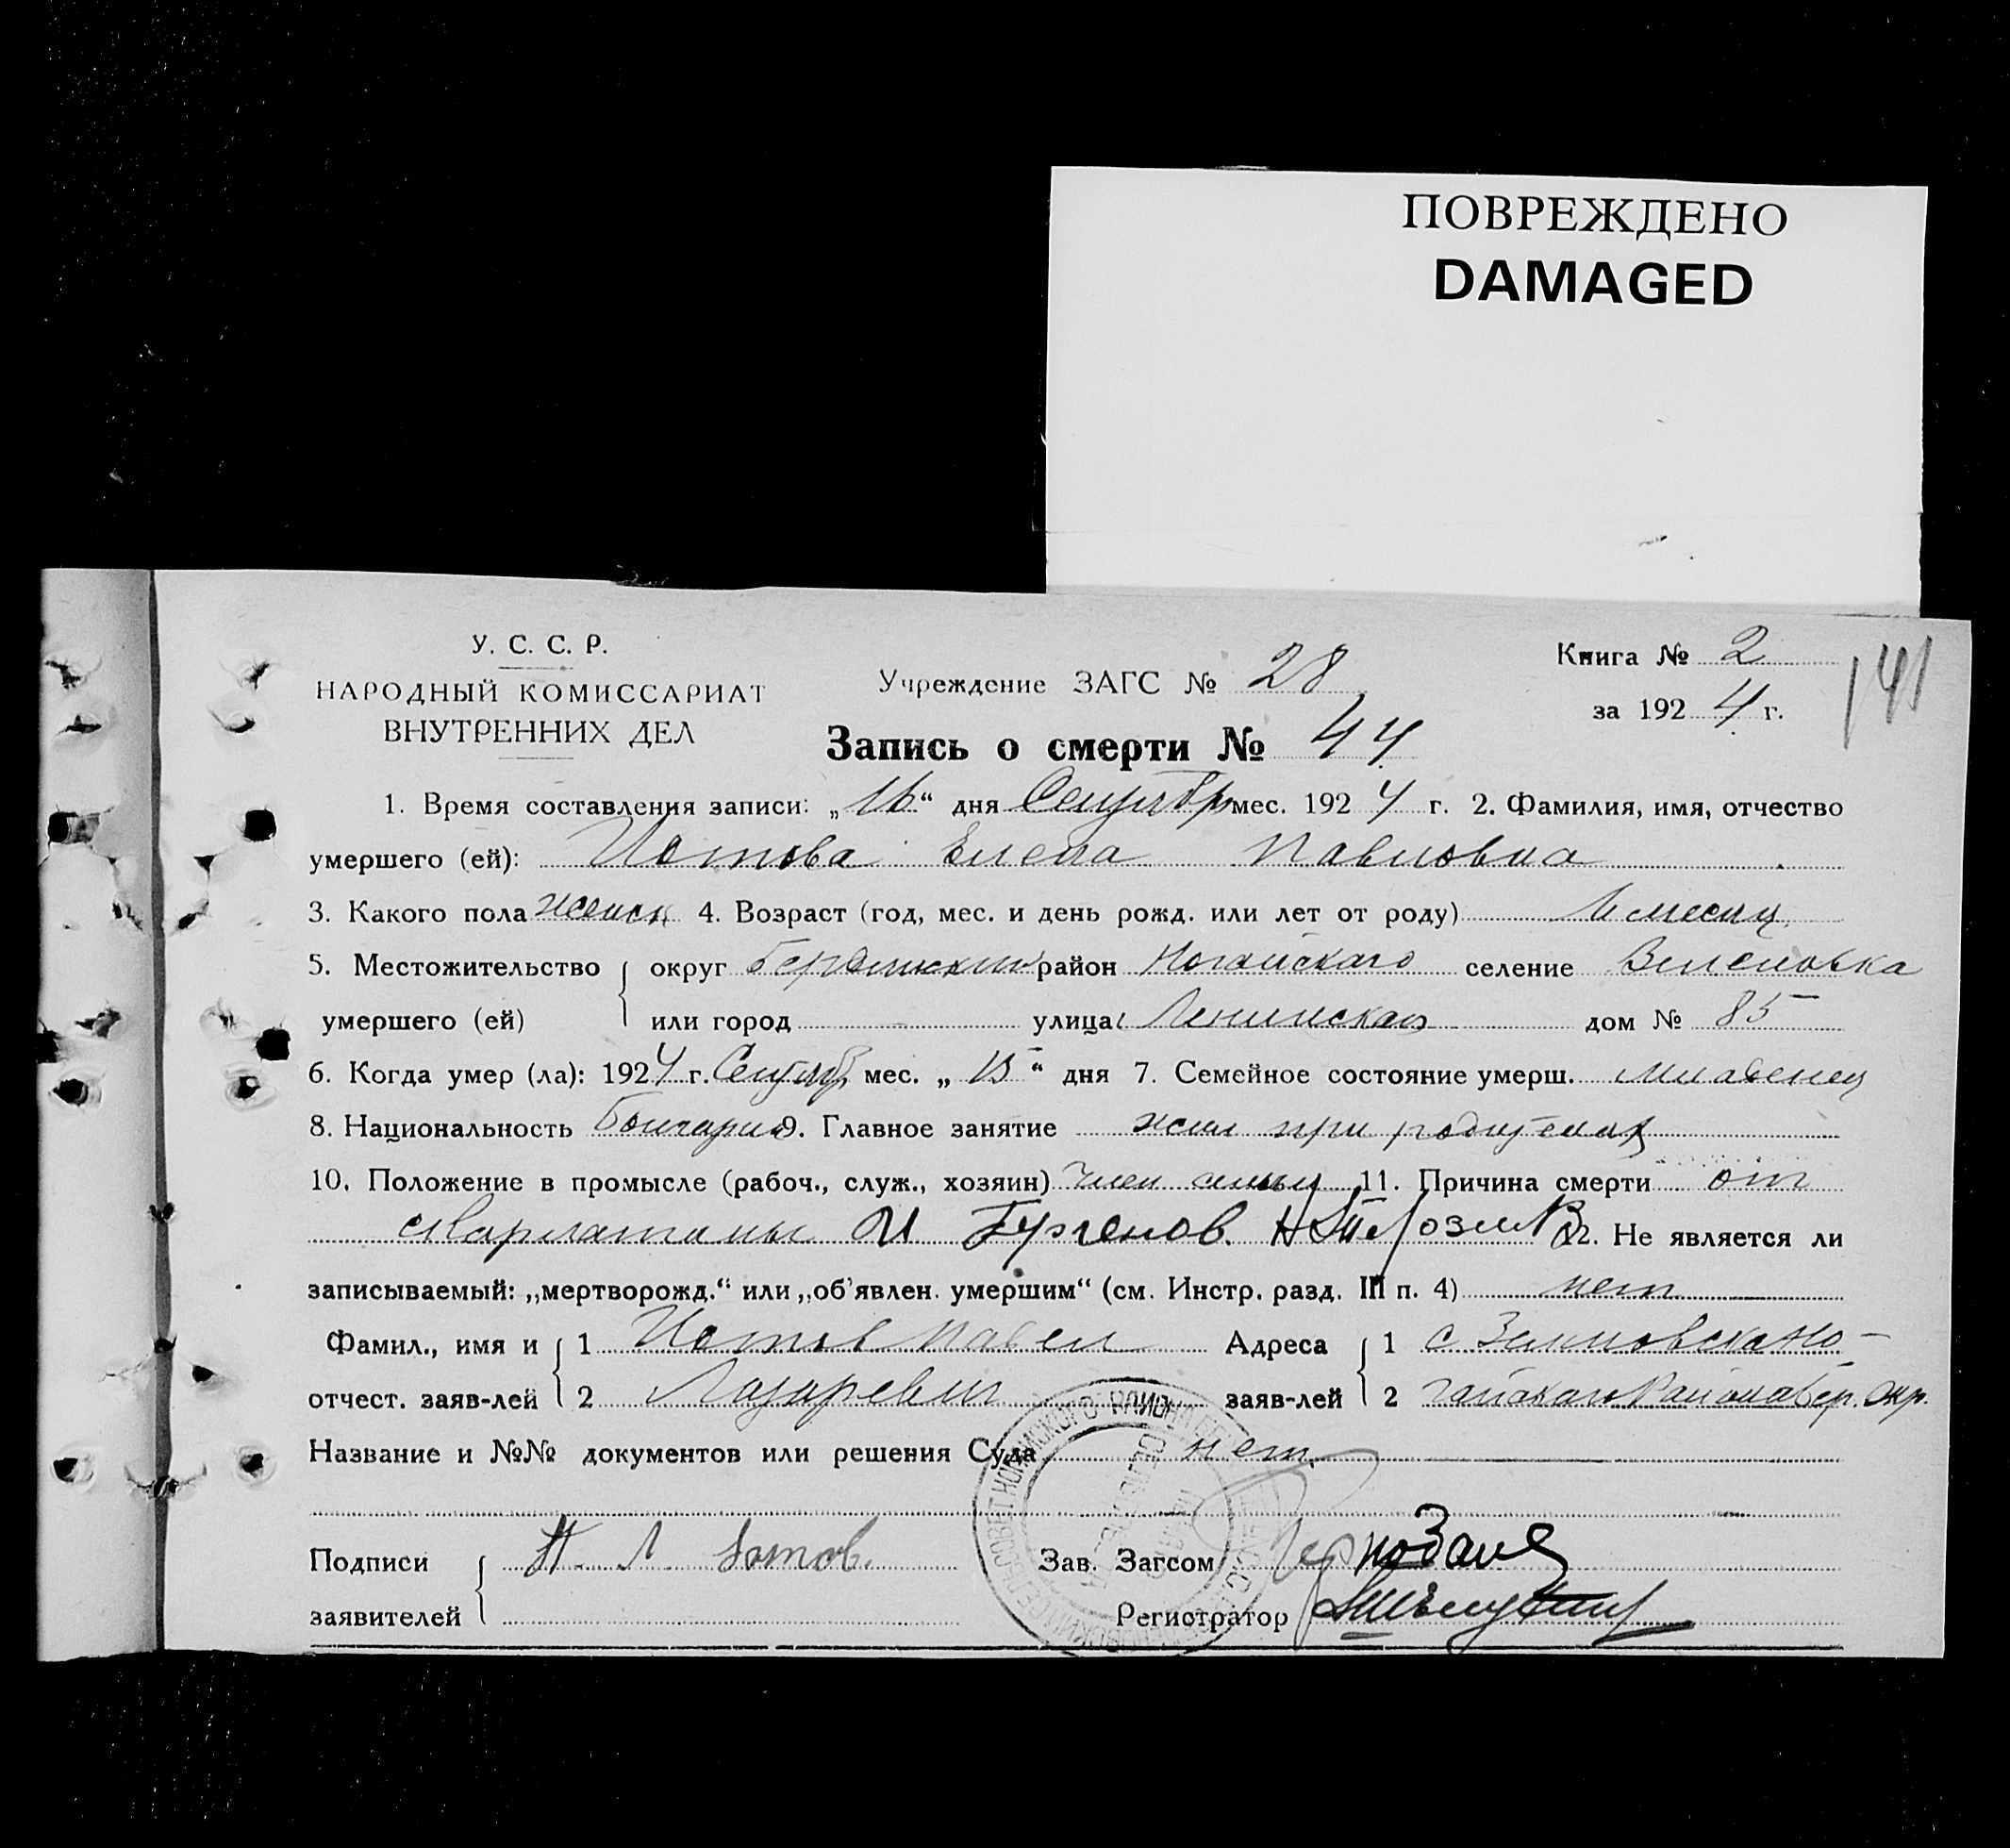 ПОВРЕЖДЕНО
DAMAGED
У. С. С. Р.
НАРОДНЫЙ КОМИССАРИАТ
ВНУТРЕННИХ ДЕЛ
Учреждение ЗАГС № 28
Книга № 2
за 1924 г.
141
Запись о смерти № 44
1. Время составления записи: „16“ дня Сентябр мес. 1924 г. 2. Фамилия, имя, отчество
умершего (ей): Иотова Елена Павловна
3. Какого пола женск 4. Возраст (год, мес. и день рожд. или лет от роду) месяц
5. Местожительство округ Бердянский район Ногайскаго селение
умершего (ей) или город улица Ленинская дом № 85
6. Когда умер (ла): 1924 г. Сентябр мес. „15“ дня 7. Семейное состояние умерш. младенец
8. Национальность Болгарка 9. Главное занятие жил при родителях
10. Положение в промысле (рабоч., служ., хозяин) член семьи 11. Причина смерти от
скарлатины И 12. Не является ли
записываемый: „мертворожд.“ или „об’явлен. умершим“ (см. Инстр. разд. III п. 4) нет
Фамил., имя и 1 Иотов Павел Адреса 1 с. Но-
отчест. заяв-лей 2 Лазаревич заяв-лей 2 гайскаго Района Бер. Окр.
Название и №№ документов или решения Суда нет.
Подписи П. Л. Іотов. Зав. Загсом
заявителей Регистратор